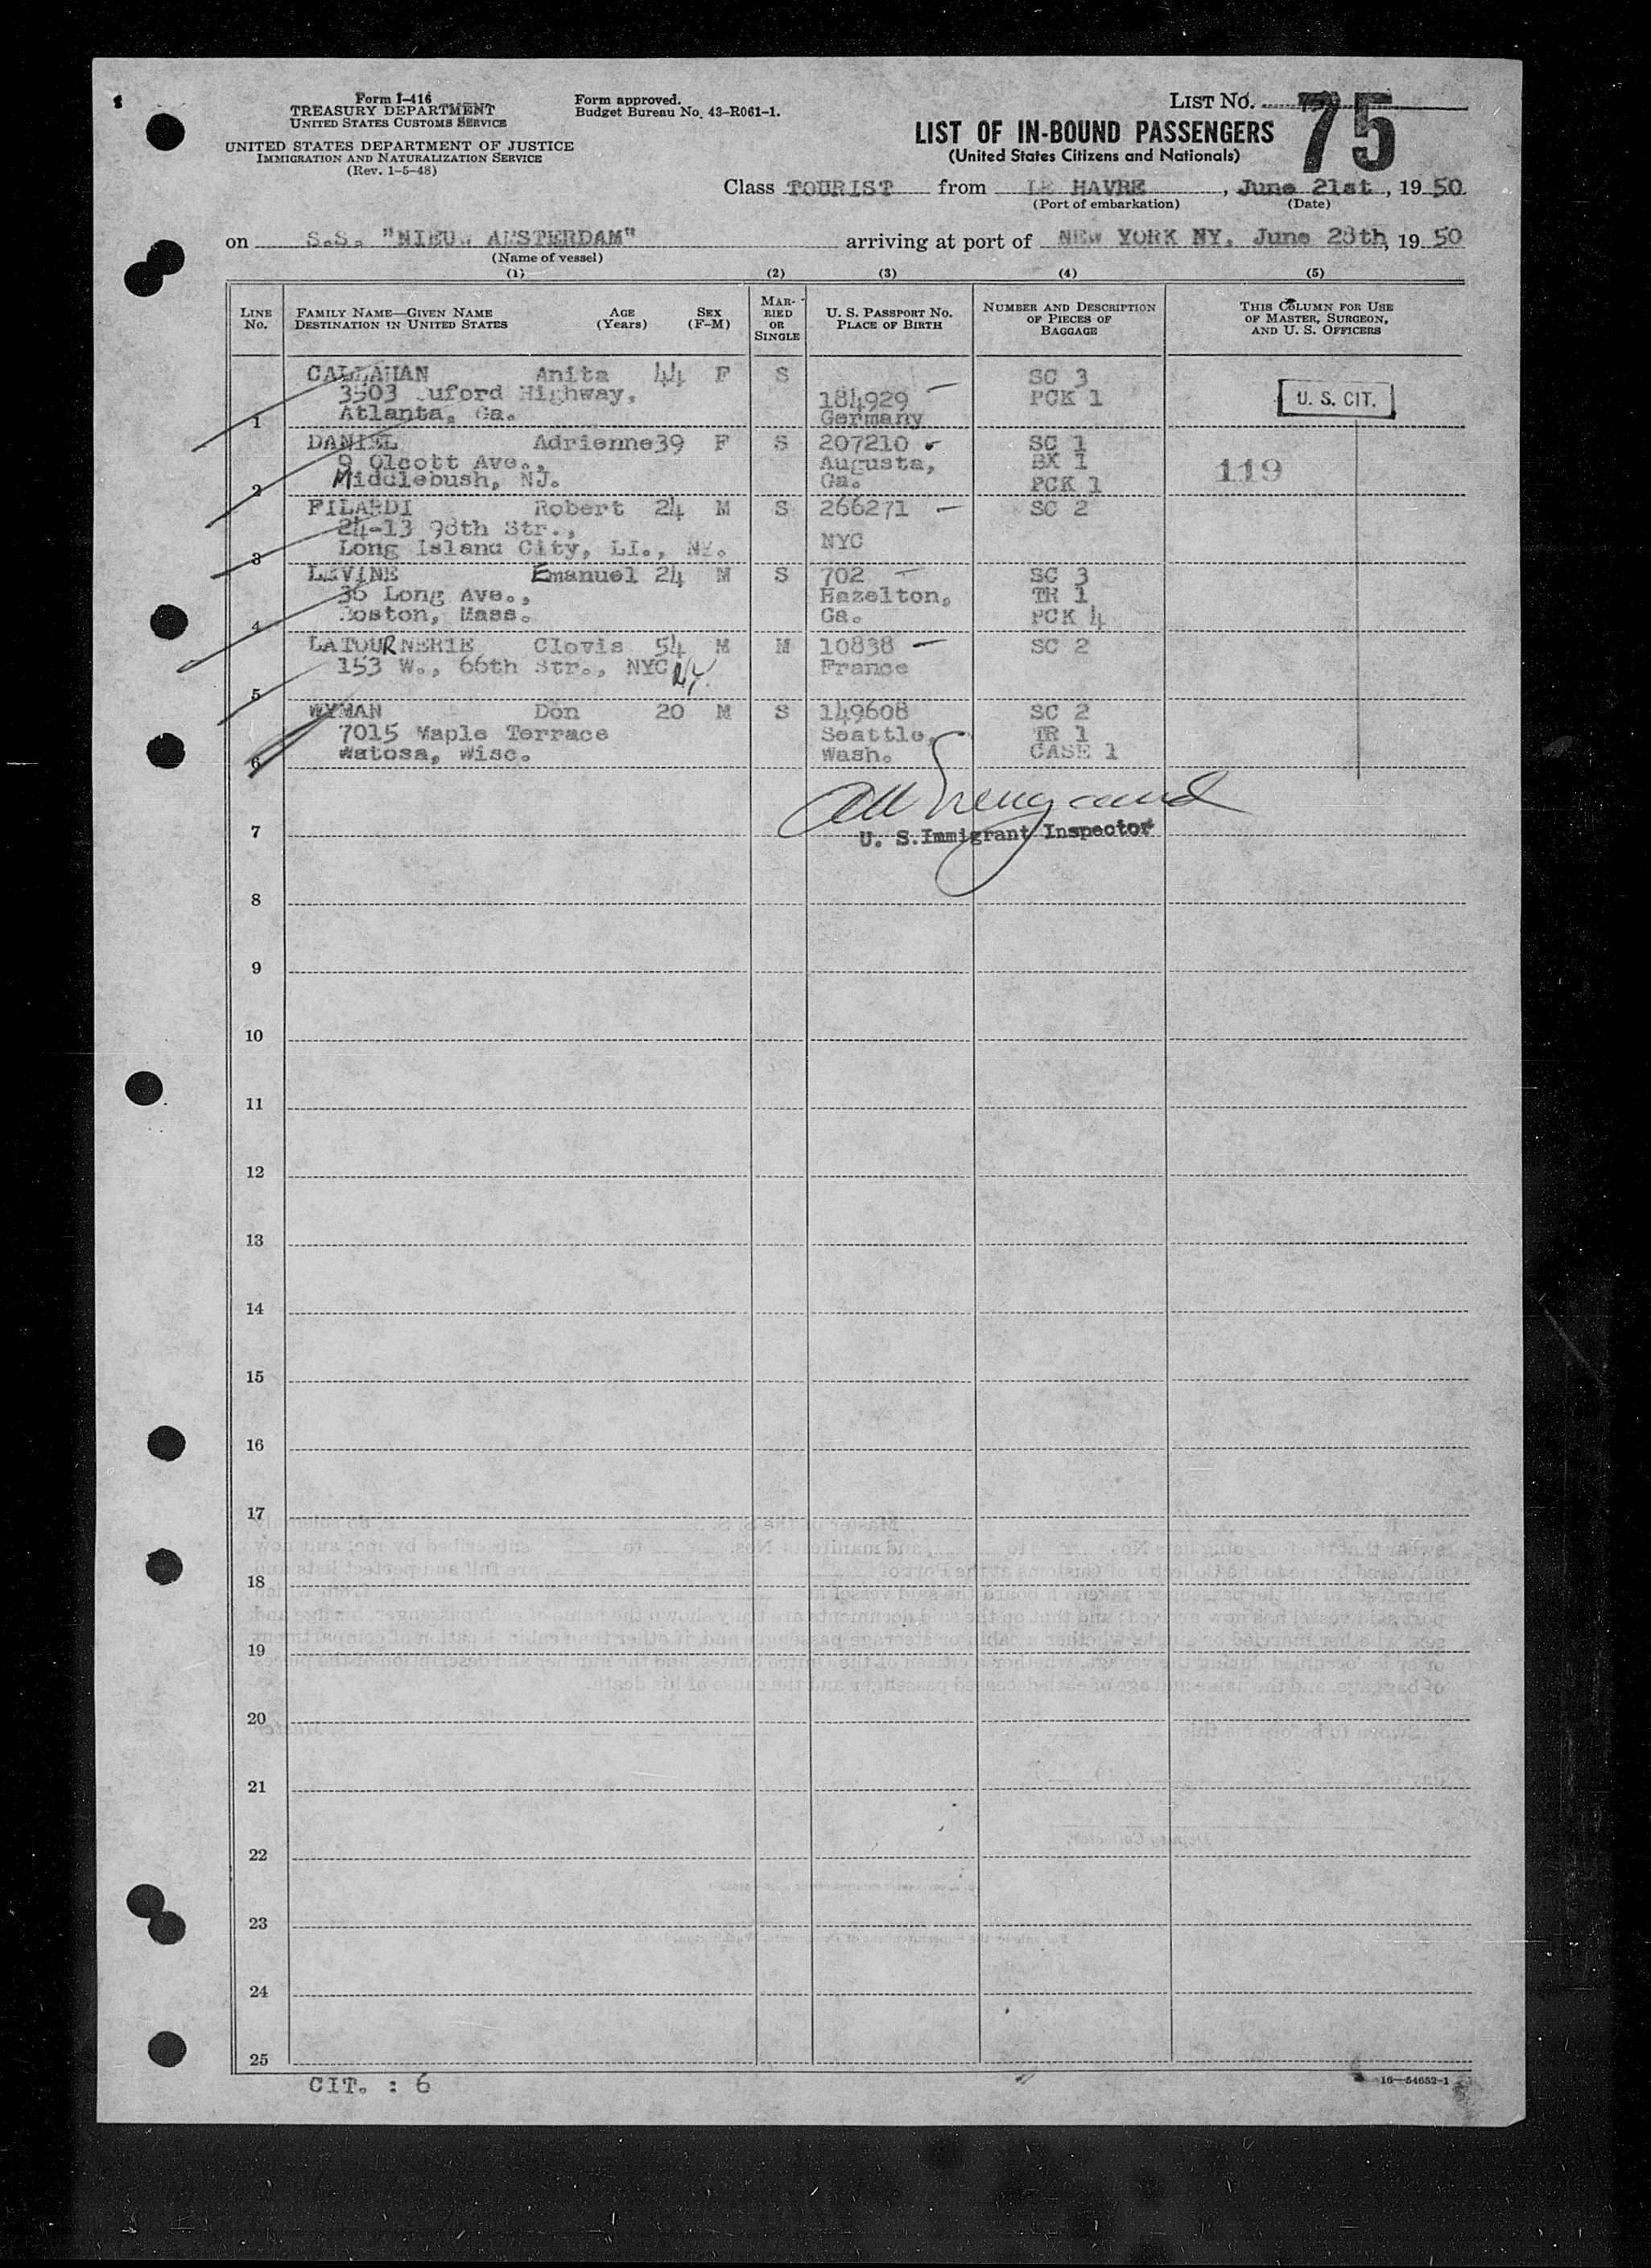 Form I-416
TREASURY DEPARTMENT
UNITED STATES CUSTOMS SERVICE
UNITED STATES DEPARTMENT OF JUSTICE
IMMIGRATION AND NATURALIZATION SERVICE
(Rev. 1-5-48)
Form approved.
Budget Bureau No. 43-R061-1.
LIST NO.
75
LIST OF IN-BOUND PASSENGERS
(United States Citizens and Nationals)
Class TOURIST from LE HAVRE, June 21st, 1950
(Port of embarkation) (Date)
on S.S. "NIEUW AMSTERDAM" arriving at port of NEW YORK NY, June 28th, 1950
(Name of vessel)
(1) (2) (3) (4) (5)
LINE No.
FAMILY NAME—GIVEN NAME
DESTINATION IN UNITED STATES
AGE (Years)
SEX (F-M)
MARRIED OR SINGLE
U. S. PASSPORT NO.
PLACE OF BIRTH
NUMBER AND DESCRIPTION OF PIECES OF BAGGAGE
THIS COLUMN FOR USE OF MASTER, SURGEON, AND U. S. OFFICERS
CALLAHAN Anita 44 F S SC 3
3503 uford Highway, 184929 PCK 1 U. S. CIT.
1 Atlanta, Ga. Germany
DANIEL Adrienne 39 F S 207210 SC 1
9 Olcott Ave., Augusta, BX 1 119
2 Middlebush, NJ. Ga. PCK 1
FILARDI Robert 24 M S 266271 SC 2
24-13 98th Str.,
3 Long Island City, LI., NY. NYC
LEVINE Emanuel 24 M S 702 SC 3
36 Long Ave., Hazelton, TR 1
4 Boston, Mass. Ga. PCK 4
LATOURNERIE Clovis 54 M M 10838 SC 2
153 W., 66th Str., NYC NY. France
5
WYMAN Don 20 M S 149608 SC 2
7015 Maple Terrace Seattle, TR 1
6 Watosa, Wisc. Wash. CASE 1
7 U. S. Immigrant Inspector
8
9
10
11
12
13
14
15
16
17
18
19
20
21
22
23
24
25
CIT. : 6
16—54652-1